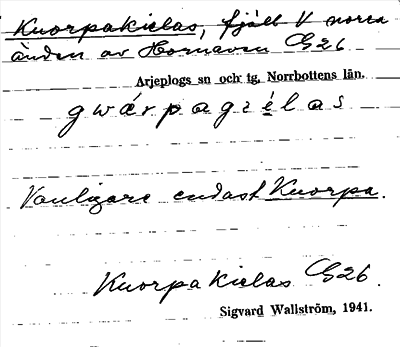 Kuorpakielas, fjäll V norra
änden av Hornavan G26
Arjeplogs sn och tg, Norrbottens län.
gwárpagiélas
Vanligare endast Kuorpa.
Kuorpakielas G26.
Sigvard Wallström, 1941.